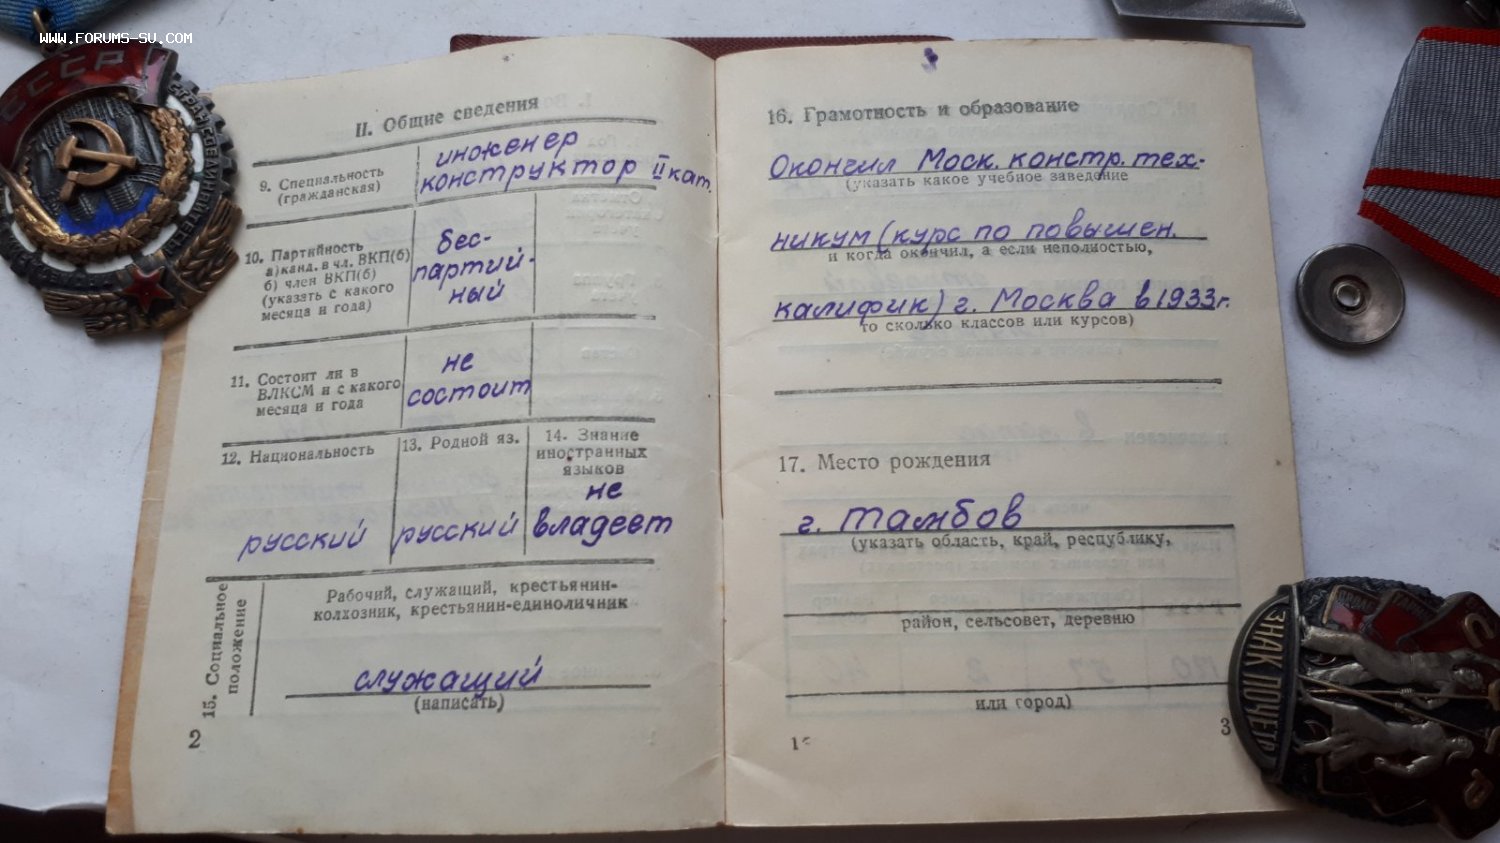 WWW.FORUMS-SU.COM
СССР
II. Общие сведения
9. Специальность
(гражданская)
инженер
конструктор II кат.
10. Партийность
а) канд. в чл. ВКП(б)
б) член ВКП(б)
(указать с какого
месяца и года)
бес-
партий-
ный
11. Состоит ли в
ВЛКСМ и с какого
месяца и года
не
состоит
12. Национальность
русский
13. Родной яз.
русский
14. Знание
иностранных
языков
не
владеет
15. Социальное
положение
Рабочий, служащий, крестьянин-
колхозник, крестьянин-единоличник
служащий
(написать)
2
16. Грамотность и образование
Окончил Моск. констр. тех-
(указать какое учебное заведение
никум (курс по повышен.
и когда окончил, а если неполностью,
калифик) г. Москва в 1933 г.
то сколько классов или курсов)
17. Место рождения
г. Тамбов
(указать область, край, республику,
район, сельсовет, деревню
или город)
3
ЗНАК ПОЧЕТА